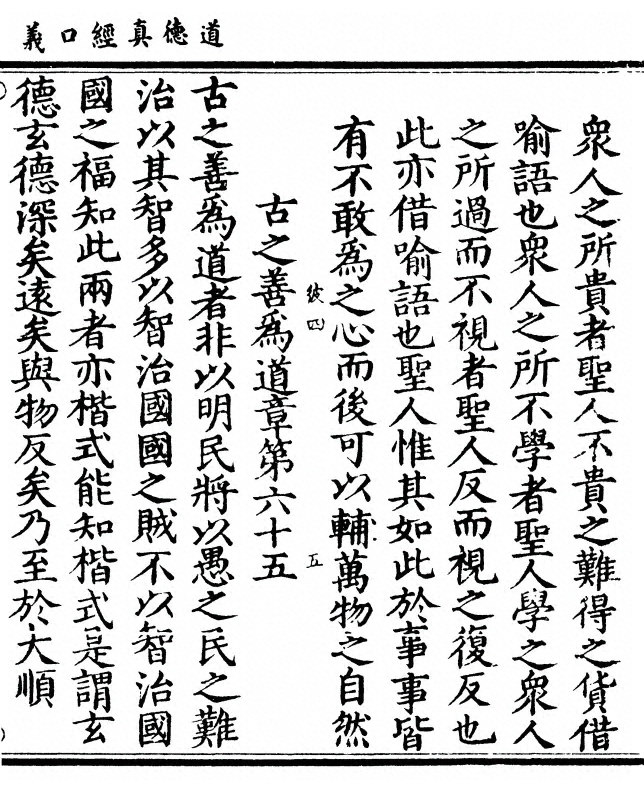 道德真經口義
衆人之所貴者聖人不貴之難得之貨借
喻語也衆人之所不學者聖人學之衆人
之所過而不視者聖人反而視之復反也
此亦借喻語也聖人惟其如此於事事皆
有不敢爲之心而後可以輔萬物之自然
彼四 五
古之善爲道章第六十五
古之善爲道者非以明民將以愚之民之難
治以其智多以智治國國之賊不以智治國
國之福知此兩者亦楷式能知楷式是謂玄
德玄德深矣遠矣與物反矣乃至於大順